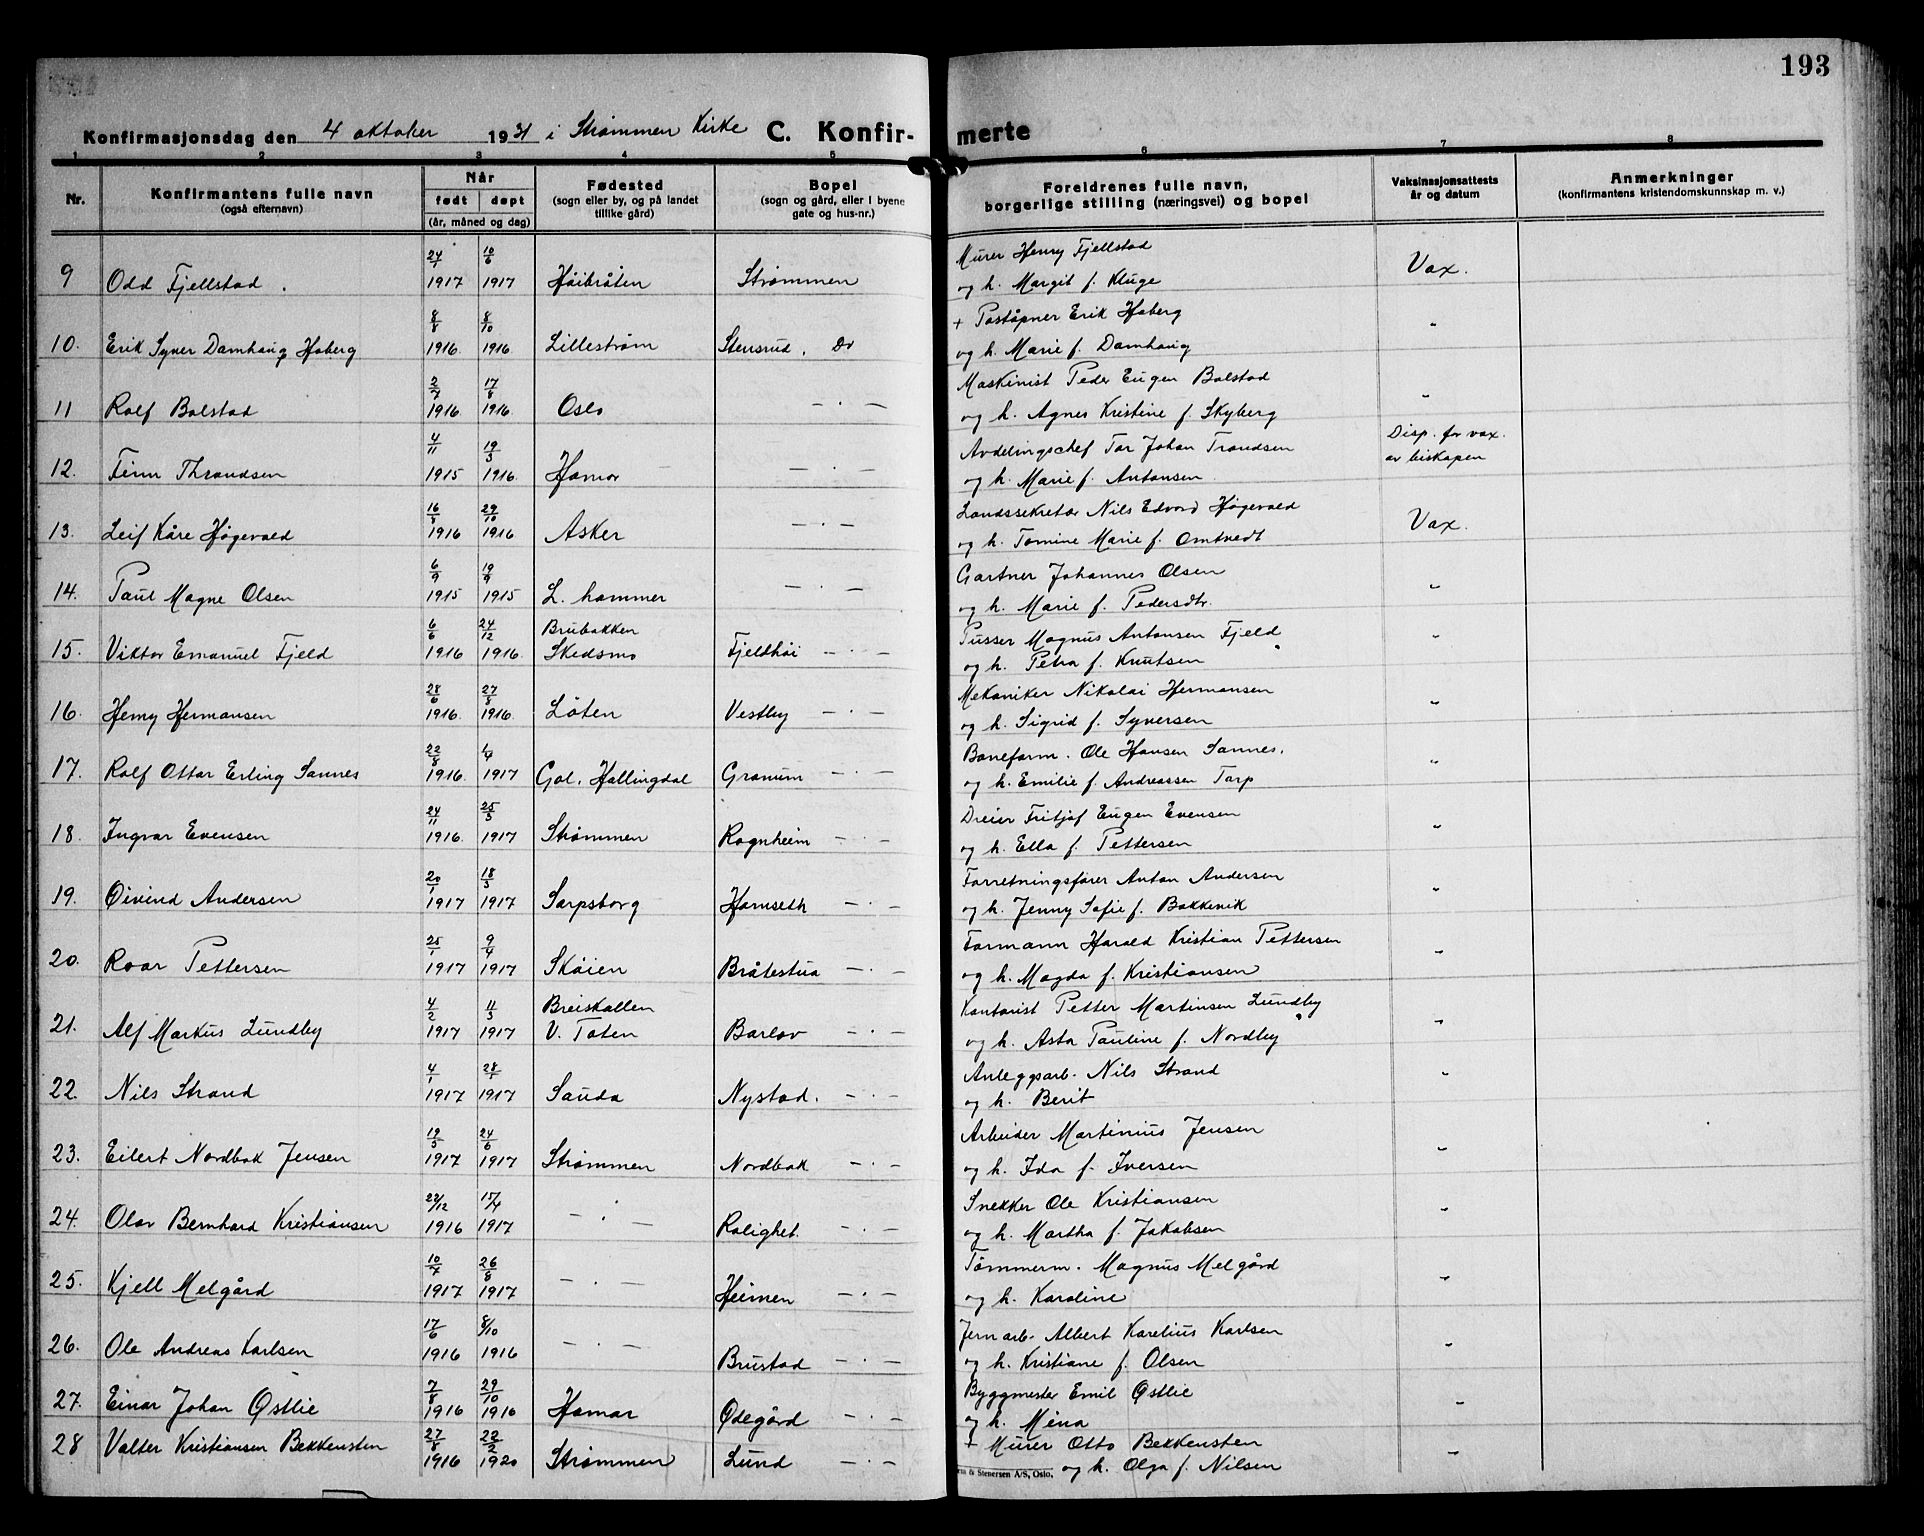 193
Konfirmasjonsdag den 4 oktober 1931 i Strømmen Kirke C. Konfirmerte
1 2 3 4 5 6 7 8
Nr. Konfirmantens fulle navn (også efternavn) Når født døpt (år, måned og dag) Fødested (sogn eller by, og på landet tillike gård) Bopel (sogn og gård, eller i byene gate og hus-nr.) Foreldrenes fulle navn, borgerlige stilling (næringsvei) og bopel Vaksinasjonsattests år og datum Anmerkninger (konfirmantens kristendomskunnskap m. v.)
24/1 10/6 Murer Henry Fjellstad
9 Odd Fjellstad. 1917 1917 Høibråten Strømmen og h. Margit f. Kluge Vax.
8/8 8/10 + Poståpner Erik Hoberg
10. Erik Syver Damhaug Hoberg 1916. 1916. Lillestrøm Stensrud. Do og h. Marie f. Damhaug "
2/7 17/8 Maskinist Peder Eugen Bolstad
11 Rolf Bolstad 1916 1916. Oslo — . — og h. Agnes Kristine f. Skyberg "
4/11 19/3 Avdelingschef Tor Johan Trondsen Disp. for vax.
12. Finn Throndsen 1915 1916. Hamar — . — og h. Marie f. Antonsen av biskopen
16/8 29/10 Landssekretær Nils Edvard Høgevold
13. Leif Kåre Høgevold 1916 1916 Asker — . — og h. Tomine Marie f. Omtvedt Vax.
6/9 19/9 Gartner Johannes Olsen
14. Paul Magne Olsen 1915 1915 L. hammer — . — og h. Marie f. Pedersdtr. "
6/6 24/12 Brubakken Pusser Magnus Antonsen Fjeld
15. Viktor Emanuel Fjeld 1916 1916. Skedsmo Fjeldhøi — . — og h. Petra f. Knutsen "
28/6 27/8 Mekaniker Nikolai Hermansen
16. Henry Hermansen 1916. 1916. Løten Vestby — . — og h. Sigrid f. Syversen "
22/8 1/4 Baneform. Ole Hansen Sannes.
17. Rolf Ottar Erling Sannes 1916. 1917 Gol, Hallingdal Granum — . — og h. Emilie f. Andreassen Torp "
24/11 25/3 Dreier Fritjof Eugen Evensen
18. Ingvar Evensen 1916. 1917 Strømmen Rognheim — . — og h. Ella f. Pettersen "
20/1 18/3 Forretningsfører Anton Andersen
19. Øivind Andersen 1917 1917 Sarpsborg Hamseth — . — og h. Jenny Sofie f. Bakkevik "
25/1 9/4 Formann Harald Kristian Pettersen
20. Roar Pettersen 1917 1917 Skøien Bråtestua — . — og h. Magda f. Kristiansen "
4/2 11/3 Breiskallen Kontorist Petter Martinsen Lundby
21. Alf Markus Lundby 1917 1917 V. Toten Barlov — . — og h. Asta Pauline f. Nordby "
4/1 28/1 Anleggsarb. Nils Strand
22. Nils Strand 1917 1917 Sauda Nystad. — . — og h. Berit "
19/5 24/6 Arbeider Martinius Jensen
23. Eilert Nordbak Jensen 1917 1917 Strømmen Nordbak — . — og h. Ida f. Iversen "
22/12 15/4 Snekker Ole Kristiansen
24. Olav Bernhard Kristiansen 1916 1917 — . — Rolighet. — . — og h. Martha f. Jakobsen "
10/7 26/8 Tømmerm. Magnus Melgård
25. Kjell Melgård 1917 1917 — . — Heimen — . — og h. Karoline "
17/6 8/10 Jernarb. Albert Karelius Karlsen
26. Ole Andreas Karlsen 1916 1916 — . — Brustad — . — og h. Kristiane f. Olsen "
7/8 29/10 Byggmester Emil Østlie
27. Einar Johan Østlie 1916 1916 Hamar Ødegård — . — og h. Mina "
27/8 22/2 + Murer Otto Bekkensten
28 Valter Kristiansen Bekkensten 1916 1920 Strømmen Lund — . — og h. Olga f. Nilsen "
& Stenersen A/S, Oslo.